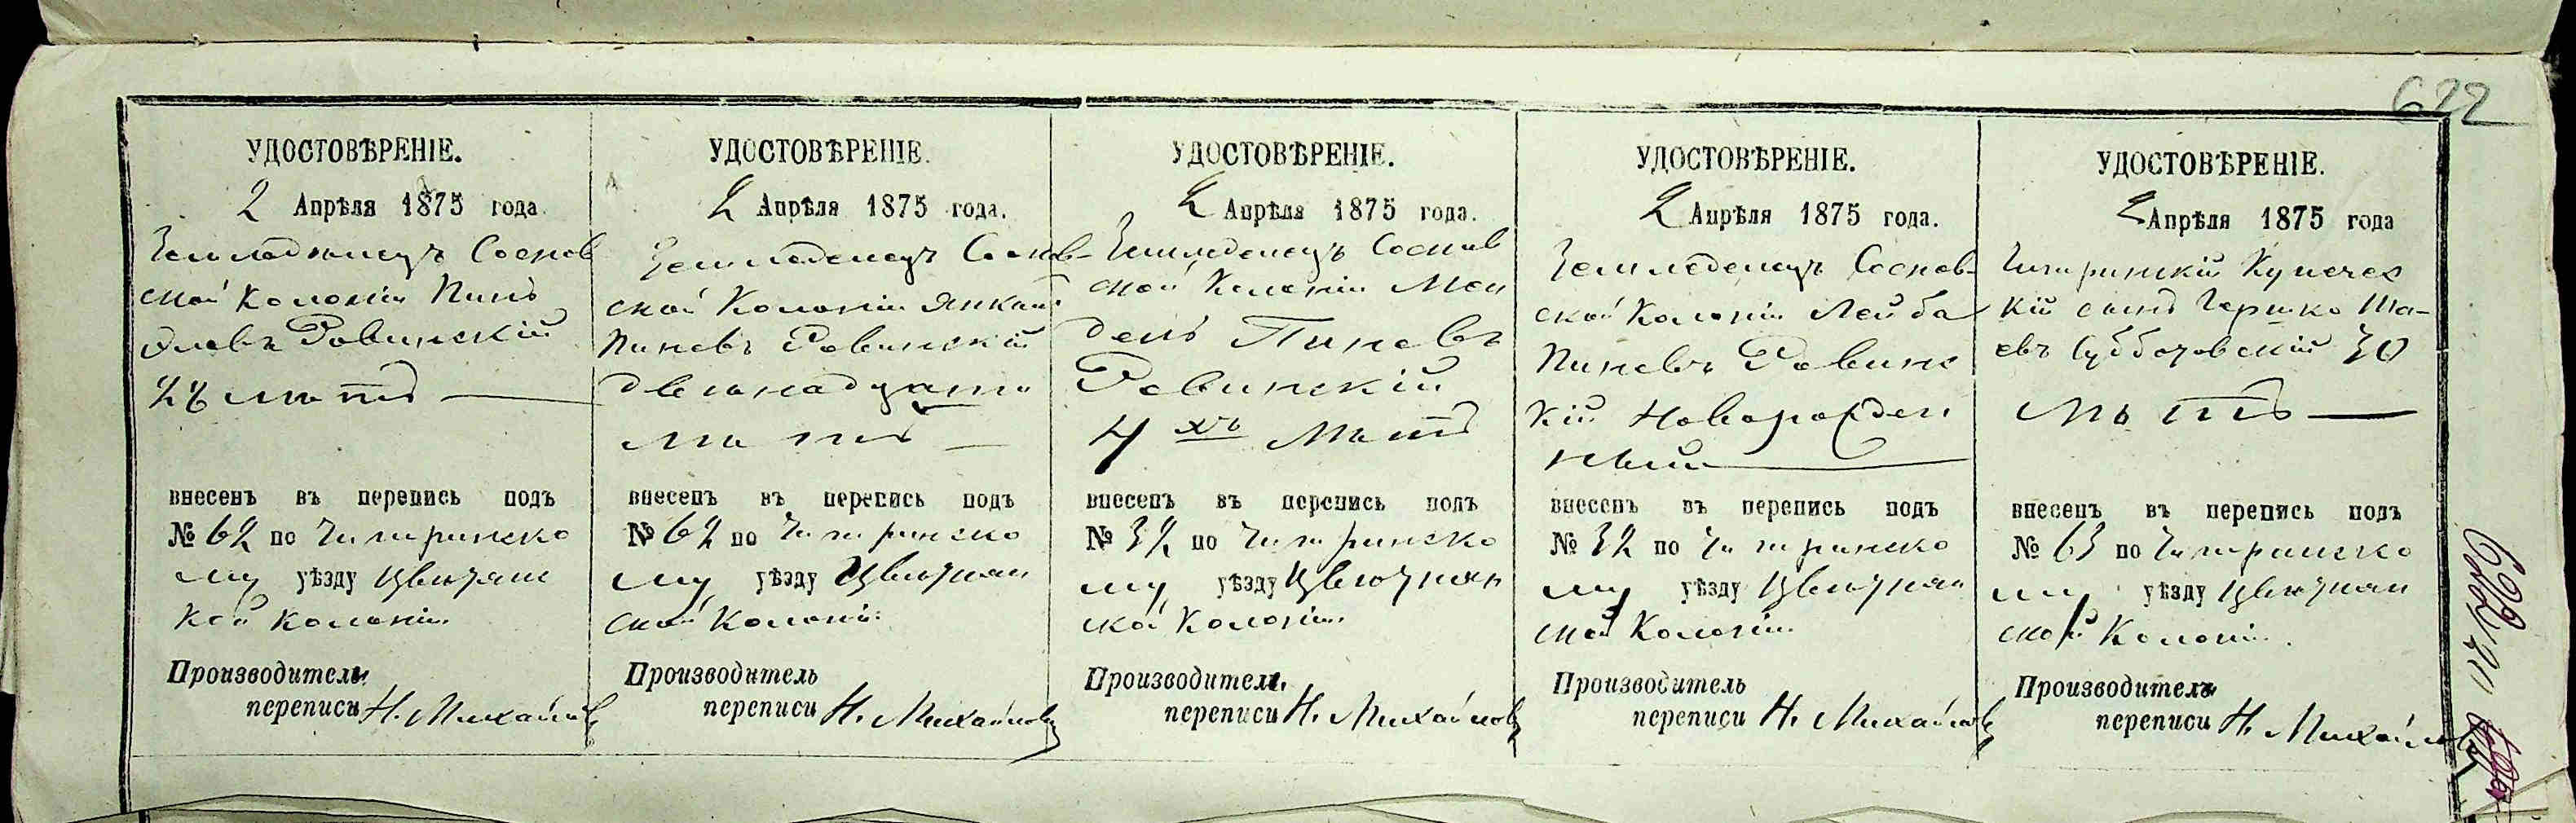 622
УДОСТОВѢРЕНІЕ.
2 Апрѣля 1875 года
Земледѣлецъ Соснов
ской Колоніи Пинь
Ровинскій
лѣтъ
внесенъ въ перепись подъ
№ 62 по Чигиринско
му уѣзду Цвѣтянс
кой Колоніи
Производитель
переписи Н. Михайловъ
УДОСТОВѢРЕНІЕ.
2 Апрѣля 1875 года.
Земледелецъ Соснов-
ской Колоніи Янкель
Пиневъ Ровинскій
двѣнадцати
лѣтъ
внесенъ въ перепись подъ
№ 62 по Чигиринско
му уѣзду Цвѣтнян
ской Колоніи
Производитель
переписи Н. Михайловъ
УДОСТОВѢРЕНІЕ.
2 Апрѣля 1875 года.
Земледелецъ Соснов
ской Колоніи Мен
дель Пиневъ
Ровинскій
4 хъ лѣтъ
внесенъ въ перепись подъ
№ 32 по Чигиринско
му уѣзду Цвѣтнян
ской Колоніи
Производитель
переписи Н. Михайловъ
УДОСТОВѢРЕНІЕ.
2 Апрѣля 1875 года.
Земледелецъ Соснов-
ской Колоніи Лейба
Пиневъ Ровинс
кій Новорожден
ный
внесенъ въ перепись подъ
№ 32 по Чигиринско
му уѣзду Цвѣтнян
ской Колоніи
Производитель
переписи Н. Михайловъ
УДОСТОВѢРЕНІЕ.
2 Апрѣля 1875 года
Чигиринскій Купечес
кій сынъ Гершко Ша-
евъ Субботовскій 30
лѣтъ
внесенъ въ перепись подъ
№ 63 по Чигиринско
му уѣзду Цвѣтнян
ской Колоніи
Производитель
переписи Н. Михайловъ